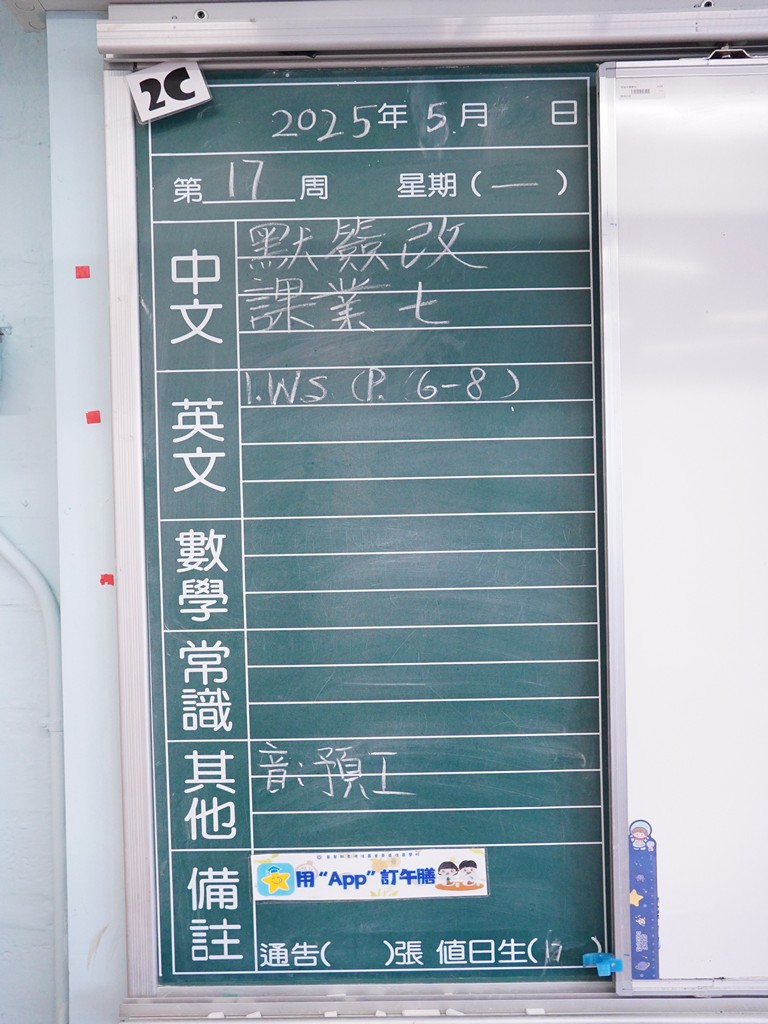 2C
2025年 5月 日
第 17 周 星期 ( 一 )
中文
默簽改
課業七
英文
1. WS (P. 6-8)
數學
常識
其他
音: 預工
備註
用 “App” 訂午膳
通告( )張 值日生( 17 )